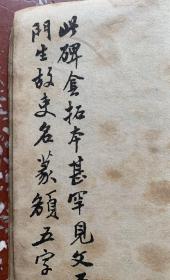 此碑佘拓本甚罕見文
門生故吏名篆額五字